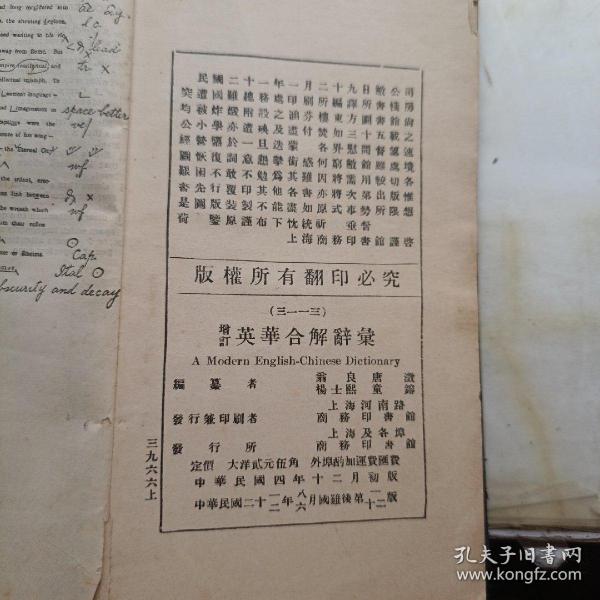 ac ag.
l.c.
lead
tr ×
space better
wf
Cap.
Stal
obscurity and decay
民國二十一年一月二十九日敝公司
突遭國難總務處印刷所編譯所書棧房
均被炸燬附設之涵芬樓東方圖書館尚
公小學亦遭殃及盡付焚如三十五載之
經營隳於一旦迭蒙各界慰問督望速
圖恢復詞意懇摯銜感何窮敝館雖處境
艱困不敢不勉爲其難因將需用各
書先行覆印其他各書亦將次第出版惟
是圖版裝製不能盡如原式事勢所限想
荷鑒原謹布下忱統祈垂詧
上海商務印書館謹啓
版權所有翻印必究
(三一一三)
增訂英華合解辭彙
A Modern English-Chinese Dictionary
編纂者 翁良唐澂
楊士熙童鎔
上海河南路
發行兼印刷者 商務印書館
上海及各埠
發行所 商務印書館
定價 大洋貳元伍角 外埠酌加運費匯費
中華民國四年十二月初版
中華民國二十一二年八六月國難後第一十二版
三九六六上
孔夫子旧书网
www.kongfz.com